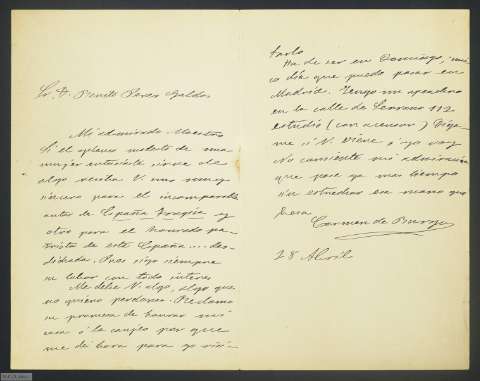 Sr. D. Benito Perez Galdos
Mi admirado Maestro
Si el aplauso modesto de una
mujer entusiasta sirve de
algo reciba V. uno muy
sincero para el incomparable
autor de España trágica y
otro para el honrado pa-
triota de esta España.... des-
dichada. Pues sigo siempre
su labor con todo interes
Me debe V. algo, algo que
no quiero perdonar. Reclamo
su promesa de honrar mi
casa ó la canjeo por que
me dé hora para yo visi-
tarlo
Ha de ser en Domingo, úni-
co dia que puedo pasar en
Madrid. Tengo mi
en la calle de 112
estudio (con ascensor) Diga-
me si V. viene ó yo voy
No consiente mi admiracion
que pase ya mas tiempo
sin estrechar esa mano que
besa
Carmen de Burgos
28 Abril